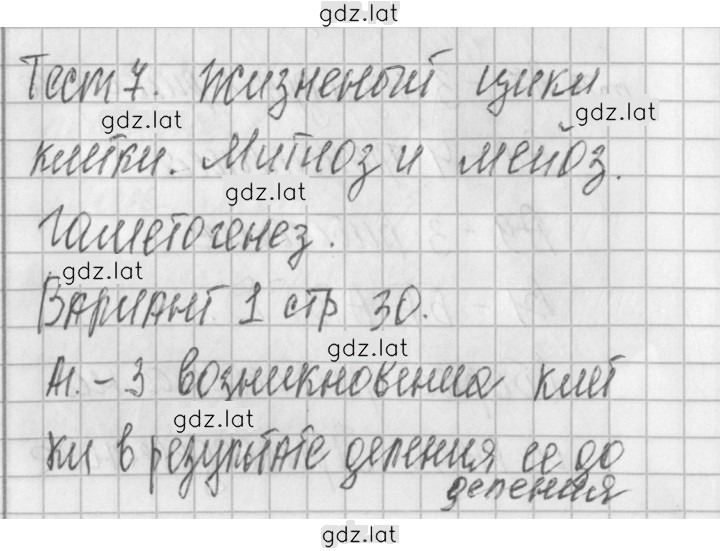 gdz.lat
Тест 7. Жизненый цикл
gdz.lat
gdz.lat
клетки. Митоз и мейоз.
gdz.lat
Гаметогенез.
gdz.lat
Вариант 1 стр 30.
gdz.lat
А1. - 3 возникновения клет
gdz.lat
ки в результате деления ее до
деления
gdz.lat